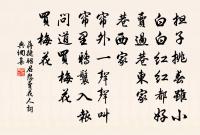 担子挑春雖小
白白紅紅都好
賣過巷東家
巷西家
帘外一聲聲叫
帘里鴉鬟入報
問道買梅花
買梅花
蔣捷昭君怨賣花人詞